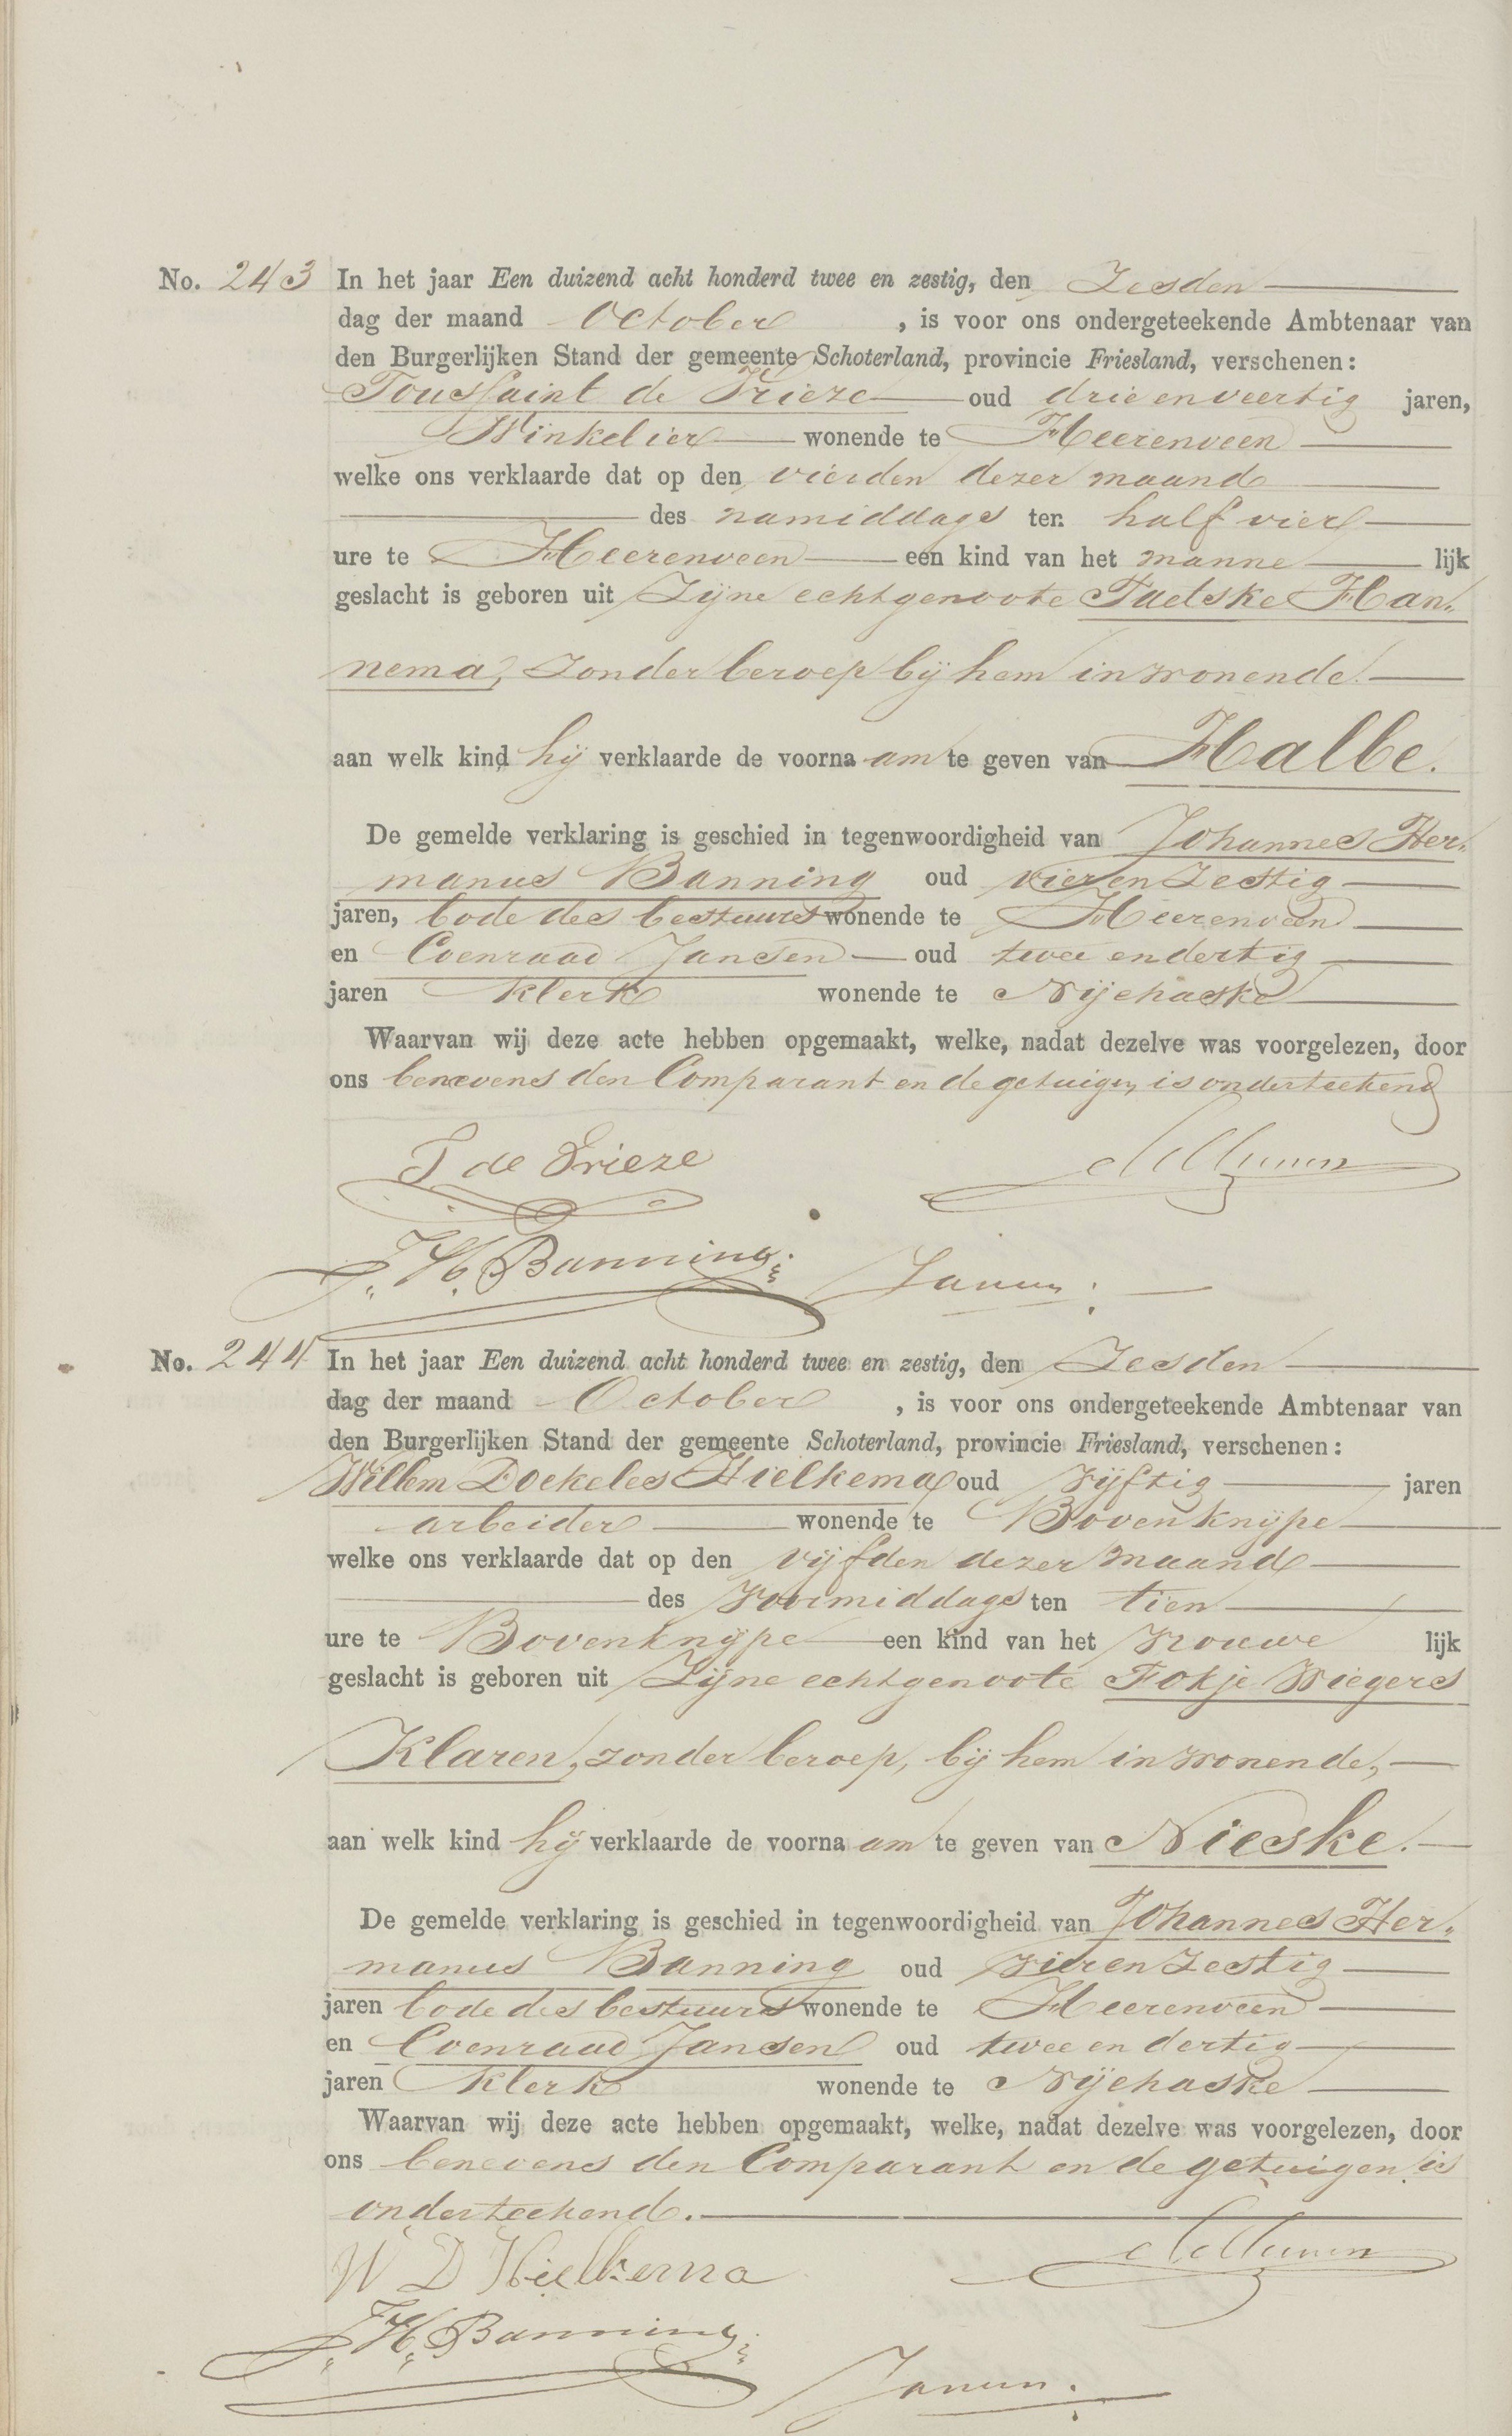 No. 243 In het jaar Een duizend acht honderd twee en zestig, den Zesden
dag der maand October , is voor ons ondergeteekende Ambtenaar van
den Burgerlijken Stand der gemeente Schoterland, provincie Friesland, verschenen:
Toussaint de Vrieze oud drie en veertig jaren,
Winkelier wonende te Heerenveen
welke ons verklaarde dat op den vierden dezer maand
des namiddags ten half vier
ure te Heerenveen een kind van het manne lijk
geslacht is geboren uit Zijne echtgenoote Taetske Han„
nema, zonder beroep bij hem inwonende.
aan welk kind hij verklaarde de voorna am te geven van Halbe.
De gemelde verklaring is geschied in tegenwoordigheid van Johannes Her„
manus Banning oud vier en Zestig
jaren, bode des bestuurs wonende te Heerenveen
en Coenraad Jansen oud twee en dertig
jaren klerk wonende te Nijehaske
Waarvan wij deze acte hebben opgemaakt, welke, nadat dezelve was voorgelezen, door
ons benevens den Comparant en de getuigen is onderteekend
T de Vrieze
J. H. Banning.
Jansen.
No. 244 In het jaar Een duizend acht honderd twee en zestig, den Zesden
dag der maand October , is voor ons ondergeteekende Ambtenaar van
den Burgerlijken Stand der gemeente Schoterland, provincie Friesland, verschenen:
Willem Doekeles Hielkema oud vijftig jaren
arbeider wonende te Bovenknijpe
welke ons verklaarde dat op den vijfden dezer maand
des voormiddags ten tien
ure te Bovenknijpe een kind van het vrouwe lijk
geslacht is geboren uit Zijne echtgenoote Fokje Wiegers
Klaren, zonder beroep, bij hem inwonende,
aan welk kind hij verklaarde de voorna am te geven van Nieske.
De gemelde verklaring is geschied in tegenwoordigheid van Johannes Her„
manus Banning oud vier en Zestig
jaren bode des bestuurs wonende te Heerenveen
en Coenraad Jansen oud twee en dertig
jaren klerk wonende te Nijehaske
Waarvan wij deze acte hebben opgemaakt, welke, nadat dezelve was voorgelezen, door
ons benevens den Comparant en de getuigen is
onderteekend.
W D Hielkema
J. H. Banning.
Jansen.